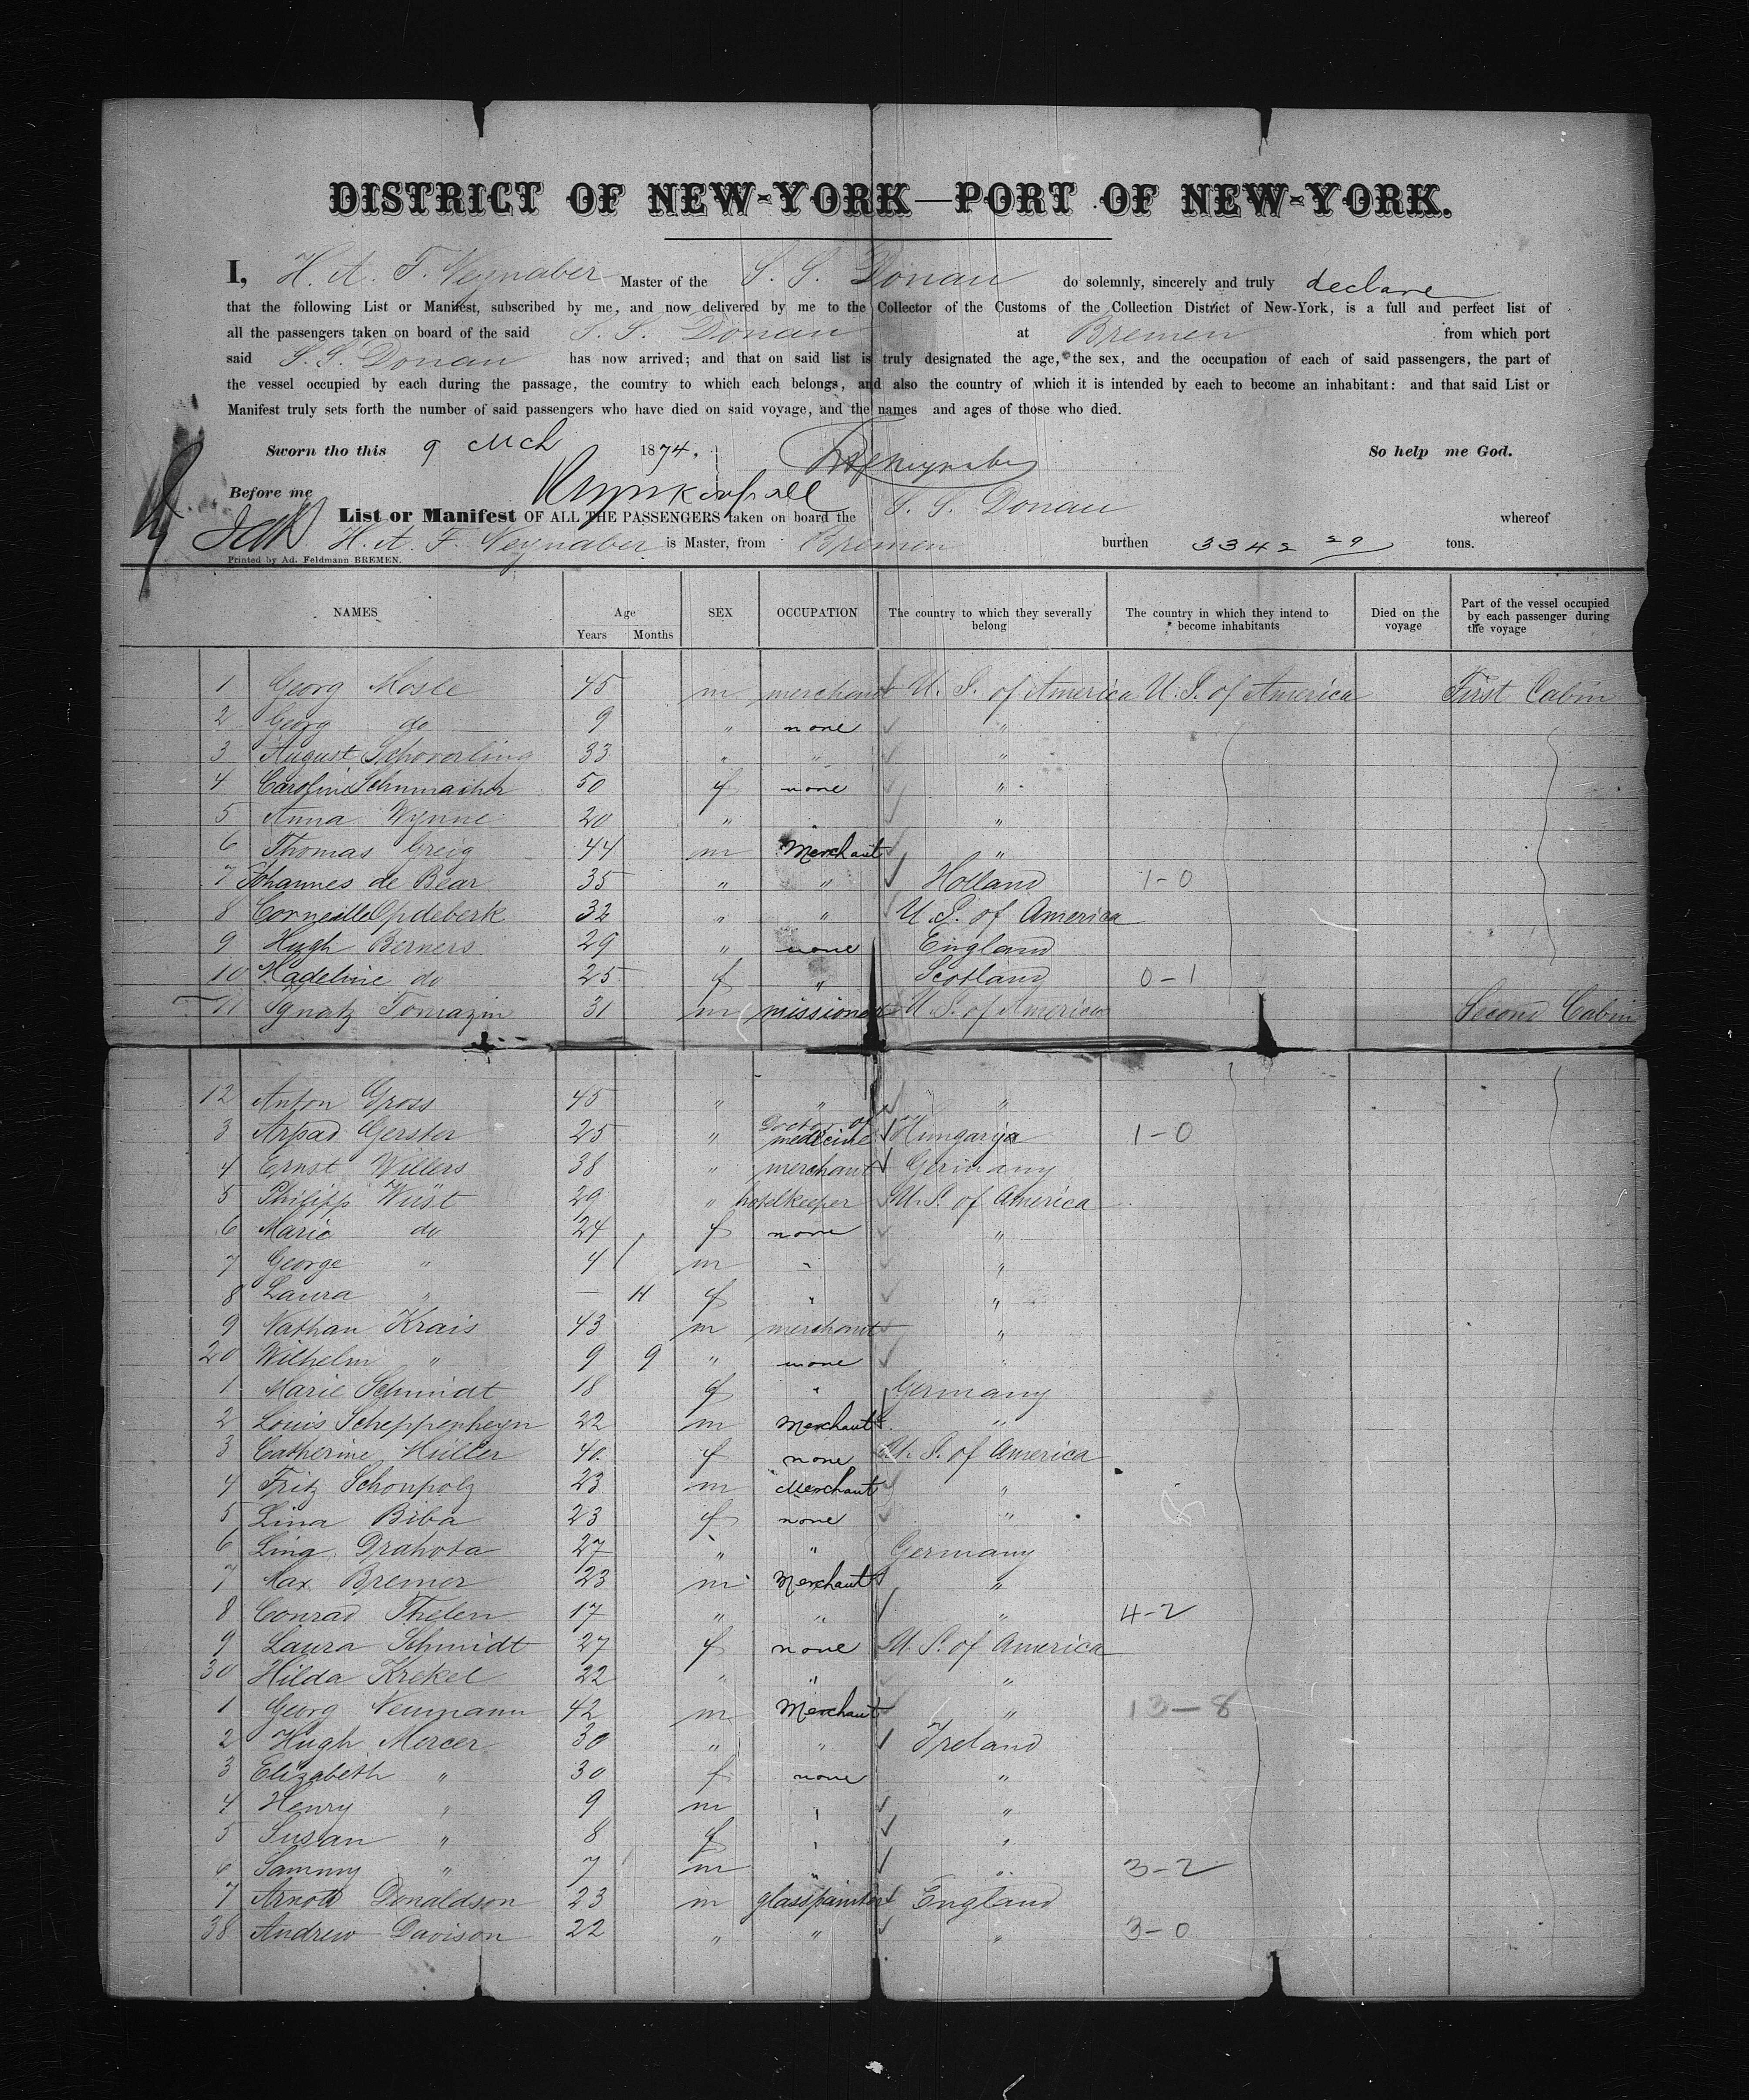 DISTRICT OF NEW-YORK—PORT OF NEW-YORK.
I, H. A. F. Neynaber Master of the S. S. Donau do solemnly, sincerely and truly declare
that the following List or Manifest, subscribed by me, and now delivered by me to the Collector of the Customs of the Collection District of New-York, is a full and perfect list of
all the passengers taken on board of the said S. S. Donau at Bremen from which port
said S. S. Donau has now arrived; and that on said list is truly designated the age, the sex, and the occupation of each of said passengers, the part of
the vessel occupied by each during the passage, the country to which each belongs, and also the country of which it is intended by each to become an inhabitant: and that said List or
Manifest truly sets forth the number of said passengers who have died on said voyage, and the names and ages of those who died.
Sworn tho this 9 Mch 1874. So help me God.
Before me
List or Manifest OF ALL THE PASSENGERS taken on board the S. S. Donau whereof
H. A. F. Neynaber is Master, from Bremen burthen 3342 29 tons.
Printed by Ad. Feldmann BREMEN.
NAMES Age Years Months SEX OCCUPATION The country to which they severally belong The country in which they intend to become inhabitants Died on the voyage Part of the vessel occupied by each passenger during the voyage
1 Georg Mosle 45 m merchant U. S. of America U. S. of America First Cabin
2 Georg do 9 " none "
3 August Schoverling 33 " " "
4 Caroline Schumacher 50 f none "
5 Anna Wynne 20 " "
6 Thomas Greig 44 m Merchant "
7 Johannes de Bear 35 " " Holland 1-0
8 Corneille Opdeberk 32 " " U. S. of America
9 Hugh Berners 29 " none England
10 Madeline do 25 f " Scotland 0-1
11 Ignatz Tomazin 31 m missionar U. S. of America Second Cabin
12 Anton Gross 45 " " "
3 Arpad Gerster 25 " Doctor of medicine Hungarya 1-0
4 Ernst Willers 38 " merchant Germany
5 Philipp Wüst 29 " hotelkeeper U. S. of America
6 Marie do 24 f none "
7 George " 4 m " "
8 Laura " — 11 f " "
9 Nathan Krais 43 m merchant "
20 Wilhelm " 9 9 " none "
1 Marie Schmidt 18 f " Germany
2 Louis Scheppenheyn 22 m Merchant "
3 Catherine Müller 40 f none U. S. of America
4 Fritz Schonpolz 23 m Merchant "
5 Lina Biba 23 f none "
6 Lina Drahota 27 " " Germany
7 Max Bremer 23 m Merchant "
8 Conrad Thelen 17 " " " 4-2
9 Laura Schmidt 27 f none U. S. of America
30 Hilda Krekel 22 " " "
1 Georg Neumann 42 m Merchant " 13-8
2 Hugh Mercer 30 " " Ireland
3 Elizabeth " 30 f none "
4 Henry " 9 m " "
5 Susan " 8 f " "
6 Sammy " 7 m " " 3-2
7 Arnold Donaldson 23 m glasspainter England
38 Andrew Davison 22 " " " 3-0